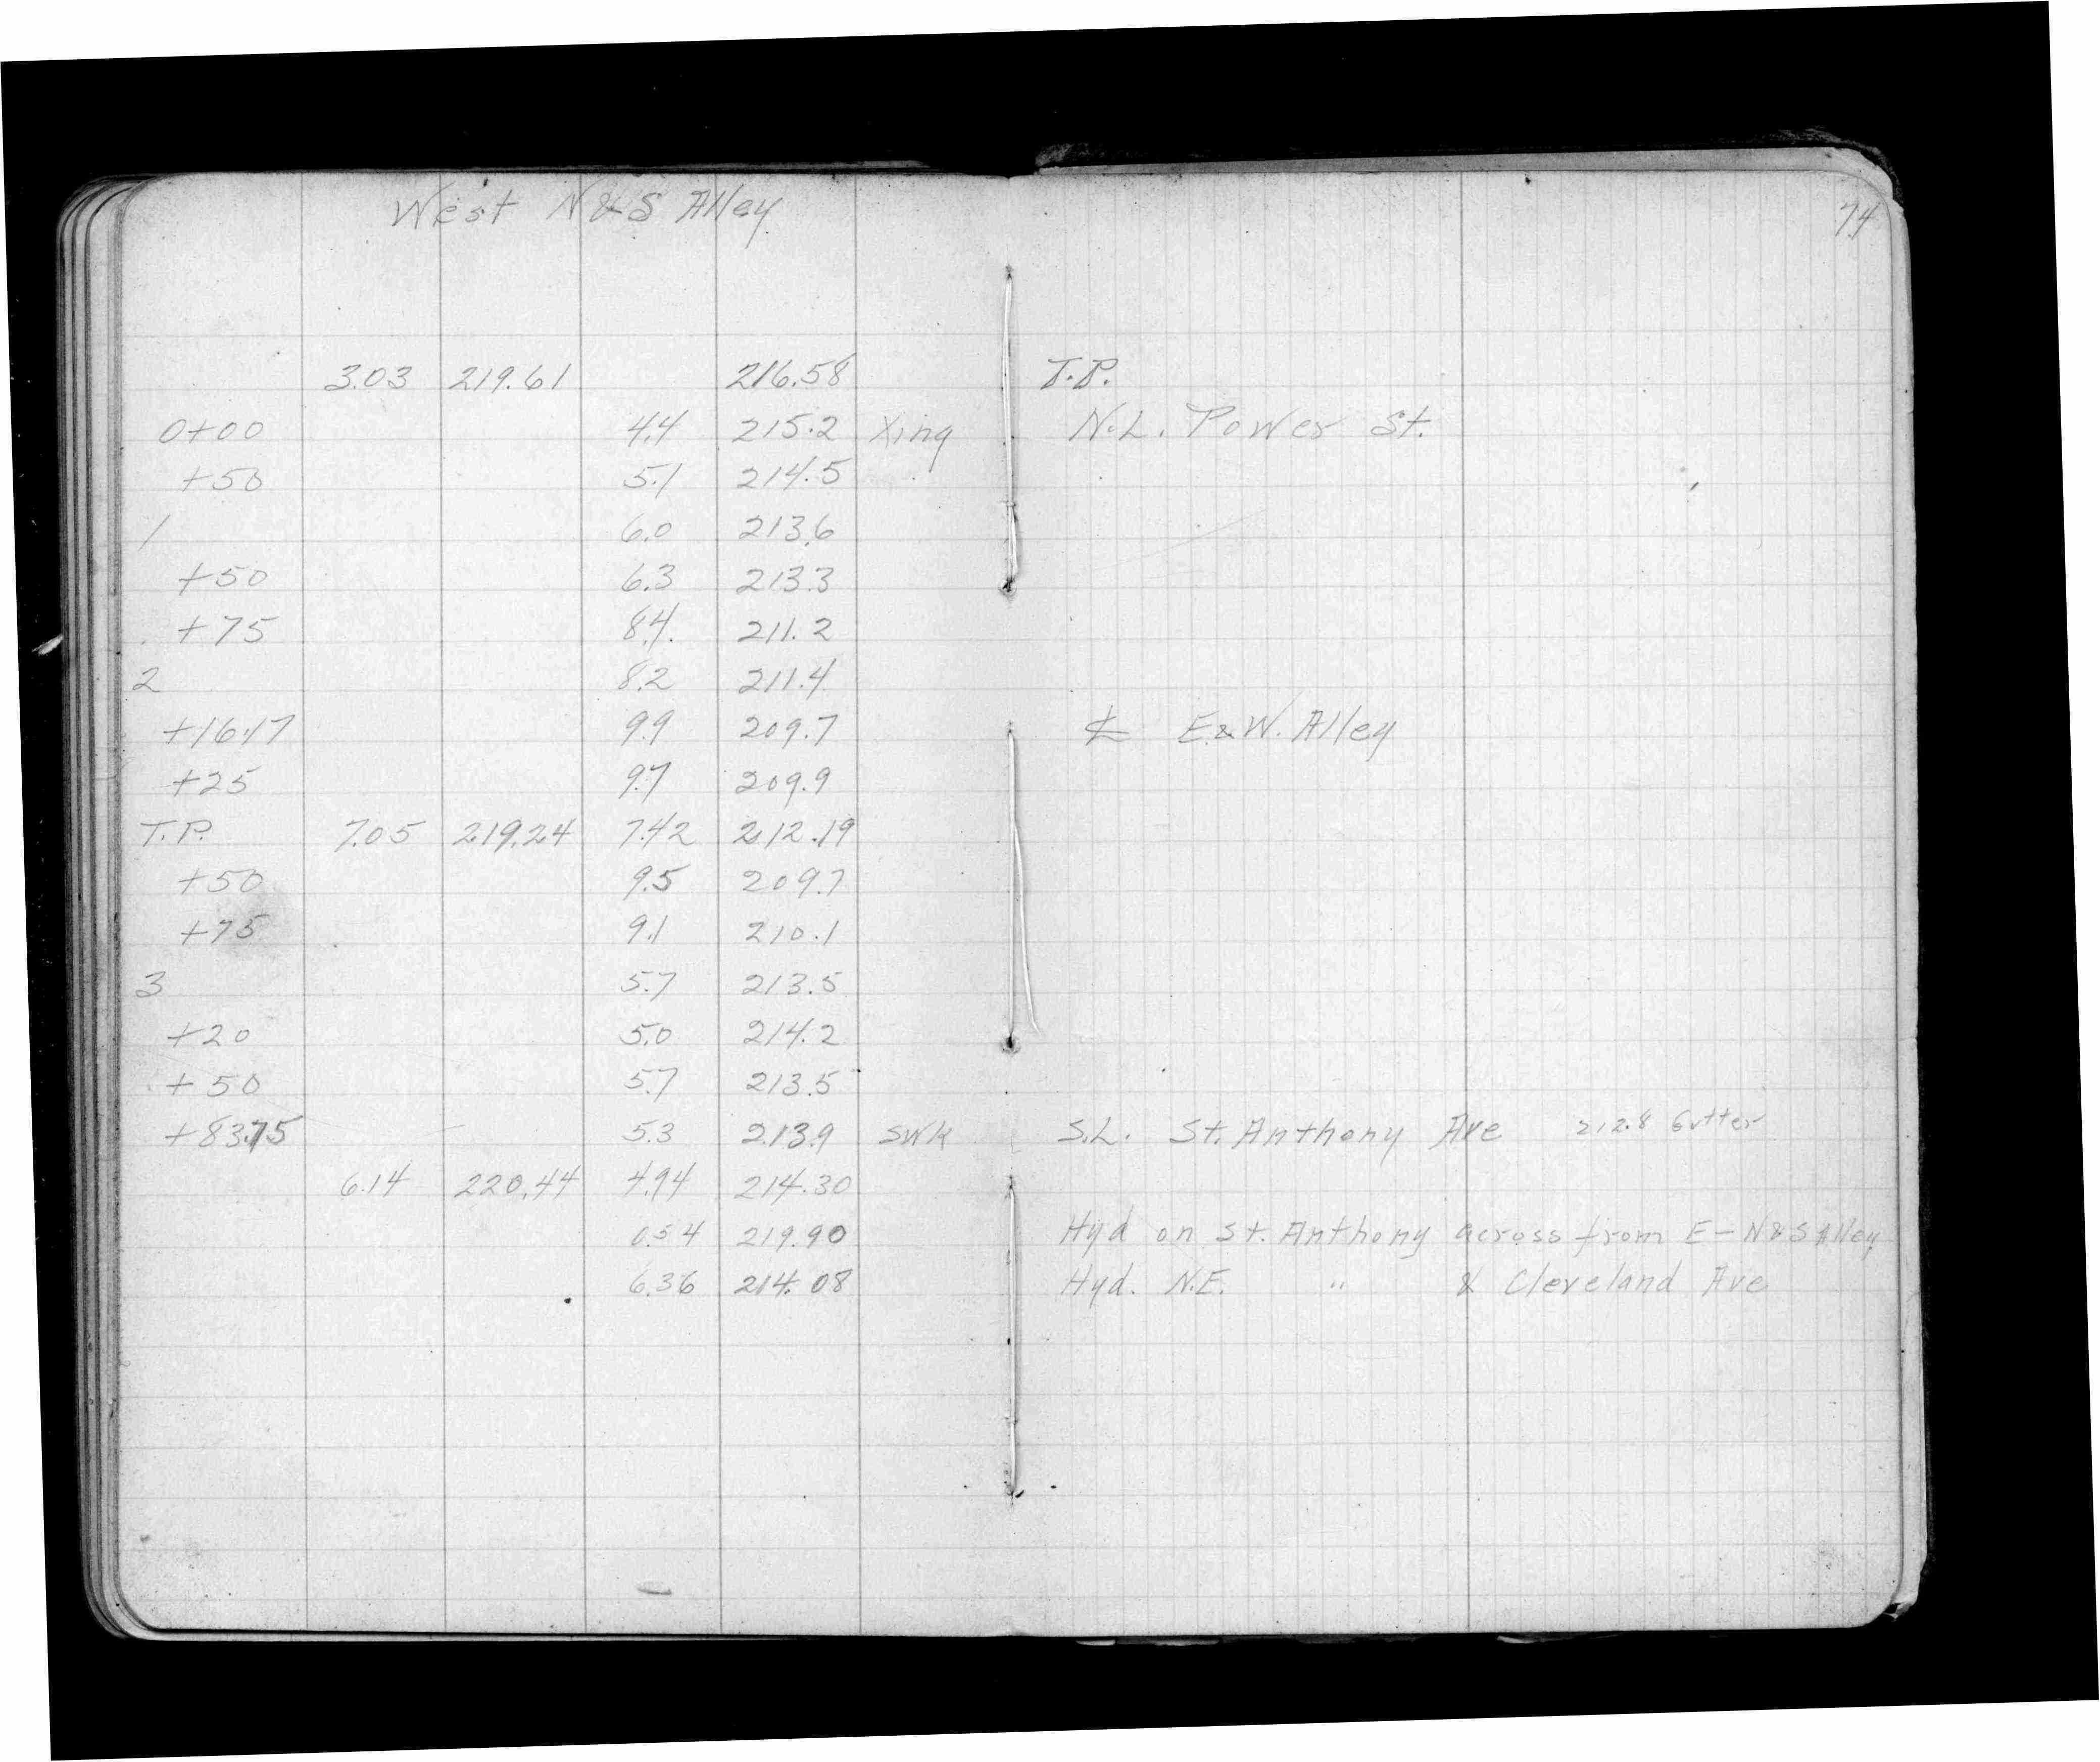 West N & S Alley
74
3.03 219.61 216.58 T.P.
0+00 4.4 215.2 Xing N.L. Power St.
+50 5.1 214.5
1 6.0 213.6
+50 6.3 213.3
+75 8.4 211.2
2 8.2 211.4
+16.17 9.9 209.7 ℄ E.&W. Alley
+25 9.7 209.9
T.P. 7.05 219.24 7.42 212.19
+50 9.5 209.7
+75 9.1 210.1
3 5.7 213.5
+20 5.0 214.2
+50 5.7 213.5
+83.75 5.3 213.9 SWK S.L. St. Anthony Ave 212.8 Gutter
6.14 220.44 4.94 214.30
0.54 219.90 Hyd on St. Anthony across from E-N&S Alley
6.36 214.08 Hyd. N.E. " & Cleveland Ave